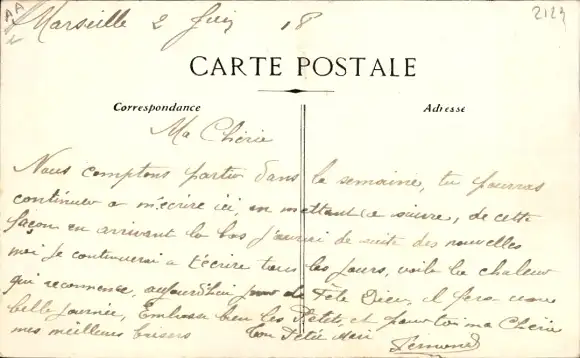 Marseille 2 Juin 18
2124
CARTE POSTALE
Correspondance
Adresse
Ma Chérie
Nous comptons partir dans la semaine, tu pourras
continuer a m'écrire ici, en mettant (a suivre, de cette
façon en arrivant la bas j'aurai de suite des nouvelles
moi je continuerai a t'écrire tous les jours, voila la chaleur
qui recommence, aujourd'hui jour de Fête Dieu, il fera une
belle journée, Embrasse bien les Petets, et pour toi ma Chérie
mes meilleurs baisers Ton Petit Mari
Fernand